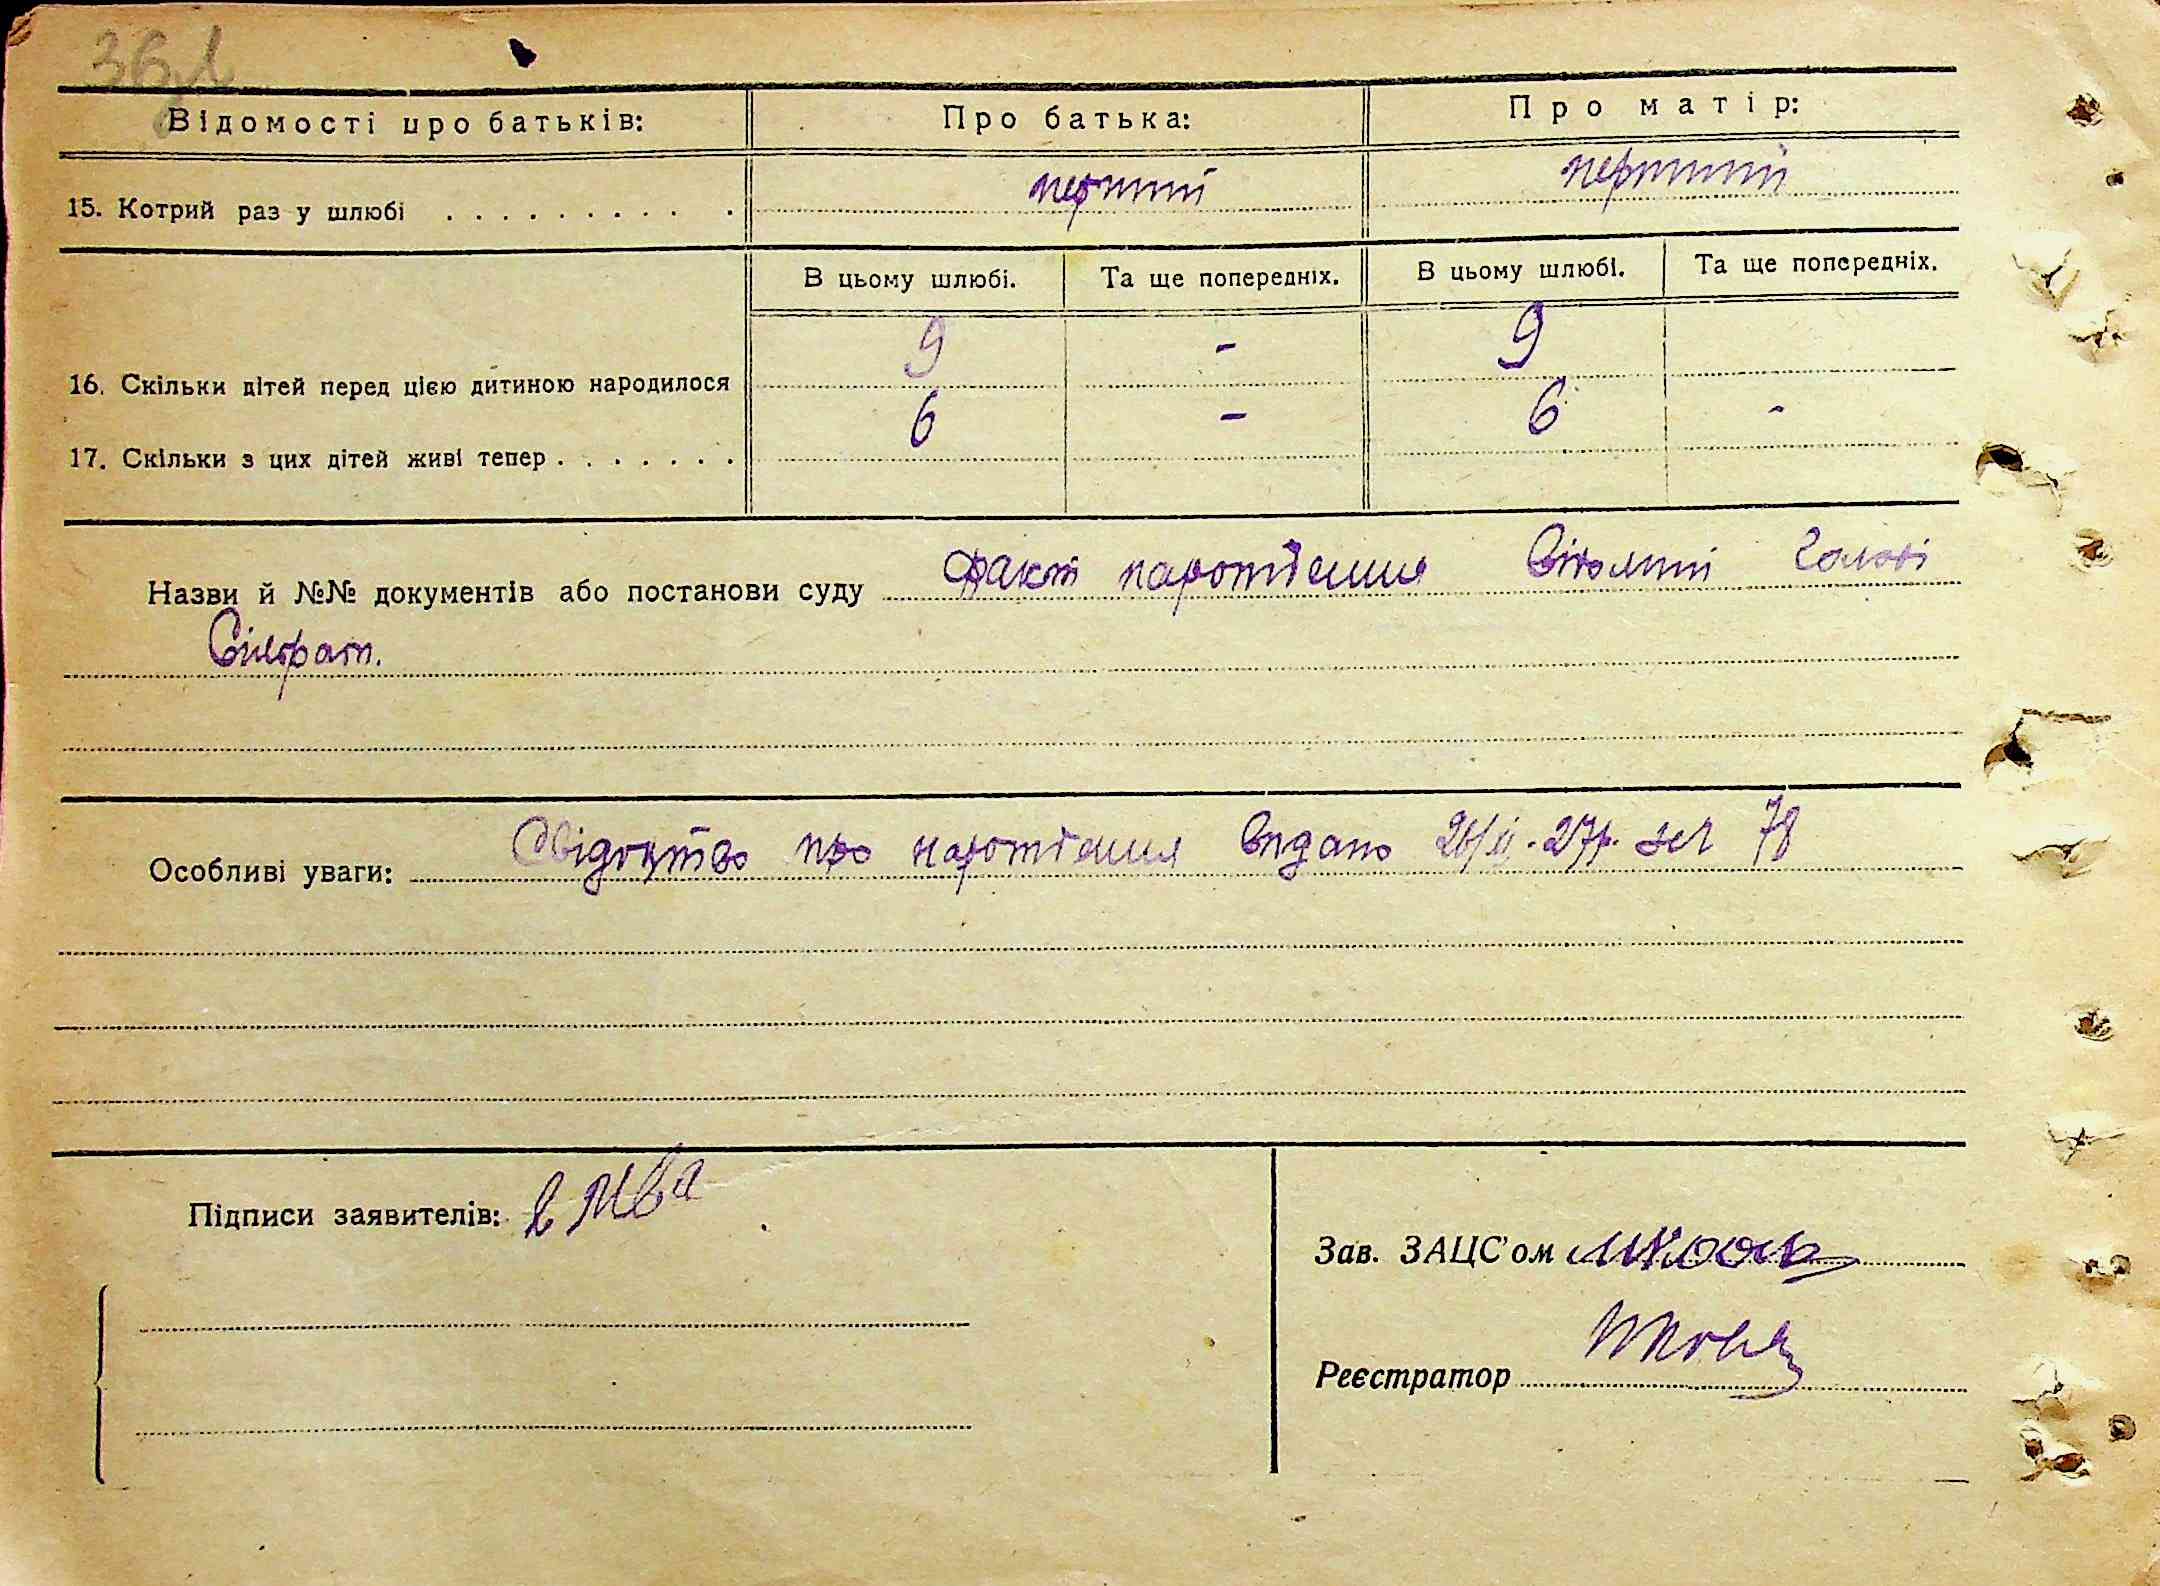 Відомості про батьків: Про батька: Про матір:
15. Котрий раз у шлюбі перший перший
В цьому шлюбі. Та ще попередніх. В цьому шлюбі. Та ще попередніх.
16. Скільки дітей перед цією дитиною народилося 9 - 9
17. Скільки з цих дітей живі тепер 6 - 6 -
Назви й №№ документів або постанови суду факт нарождения Відомий Голові
Сільрат.
Особливі уваги: Свідоцтво про нарождения Видано 26/ІІ-27р. за № 78
Підписи заявителів:
Зав. ЗАЦС'ом
Реєстратор